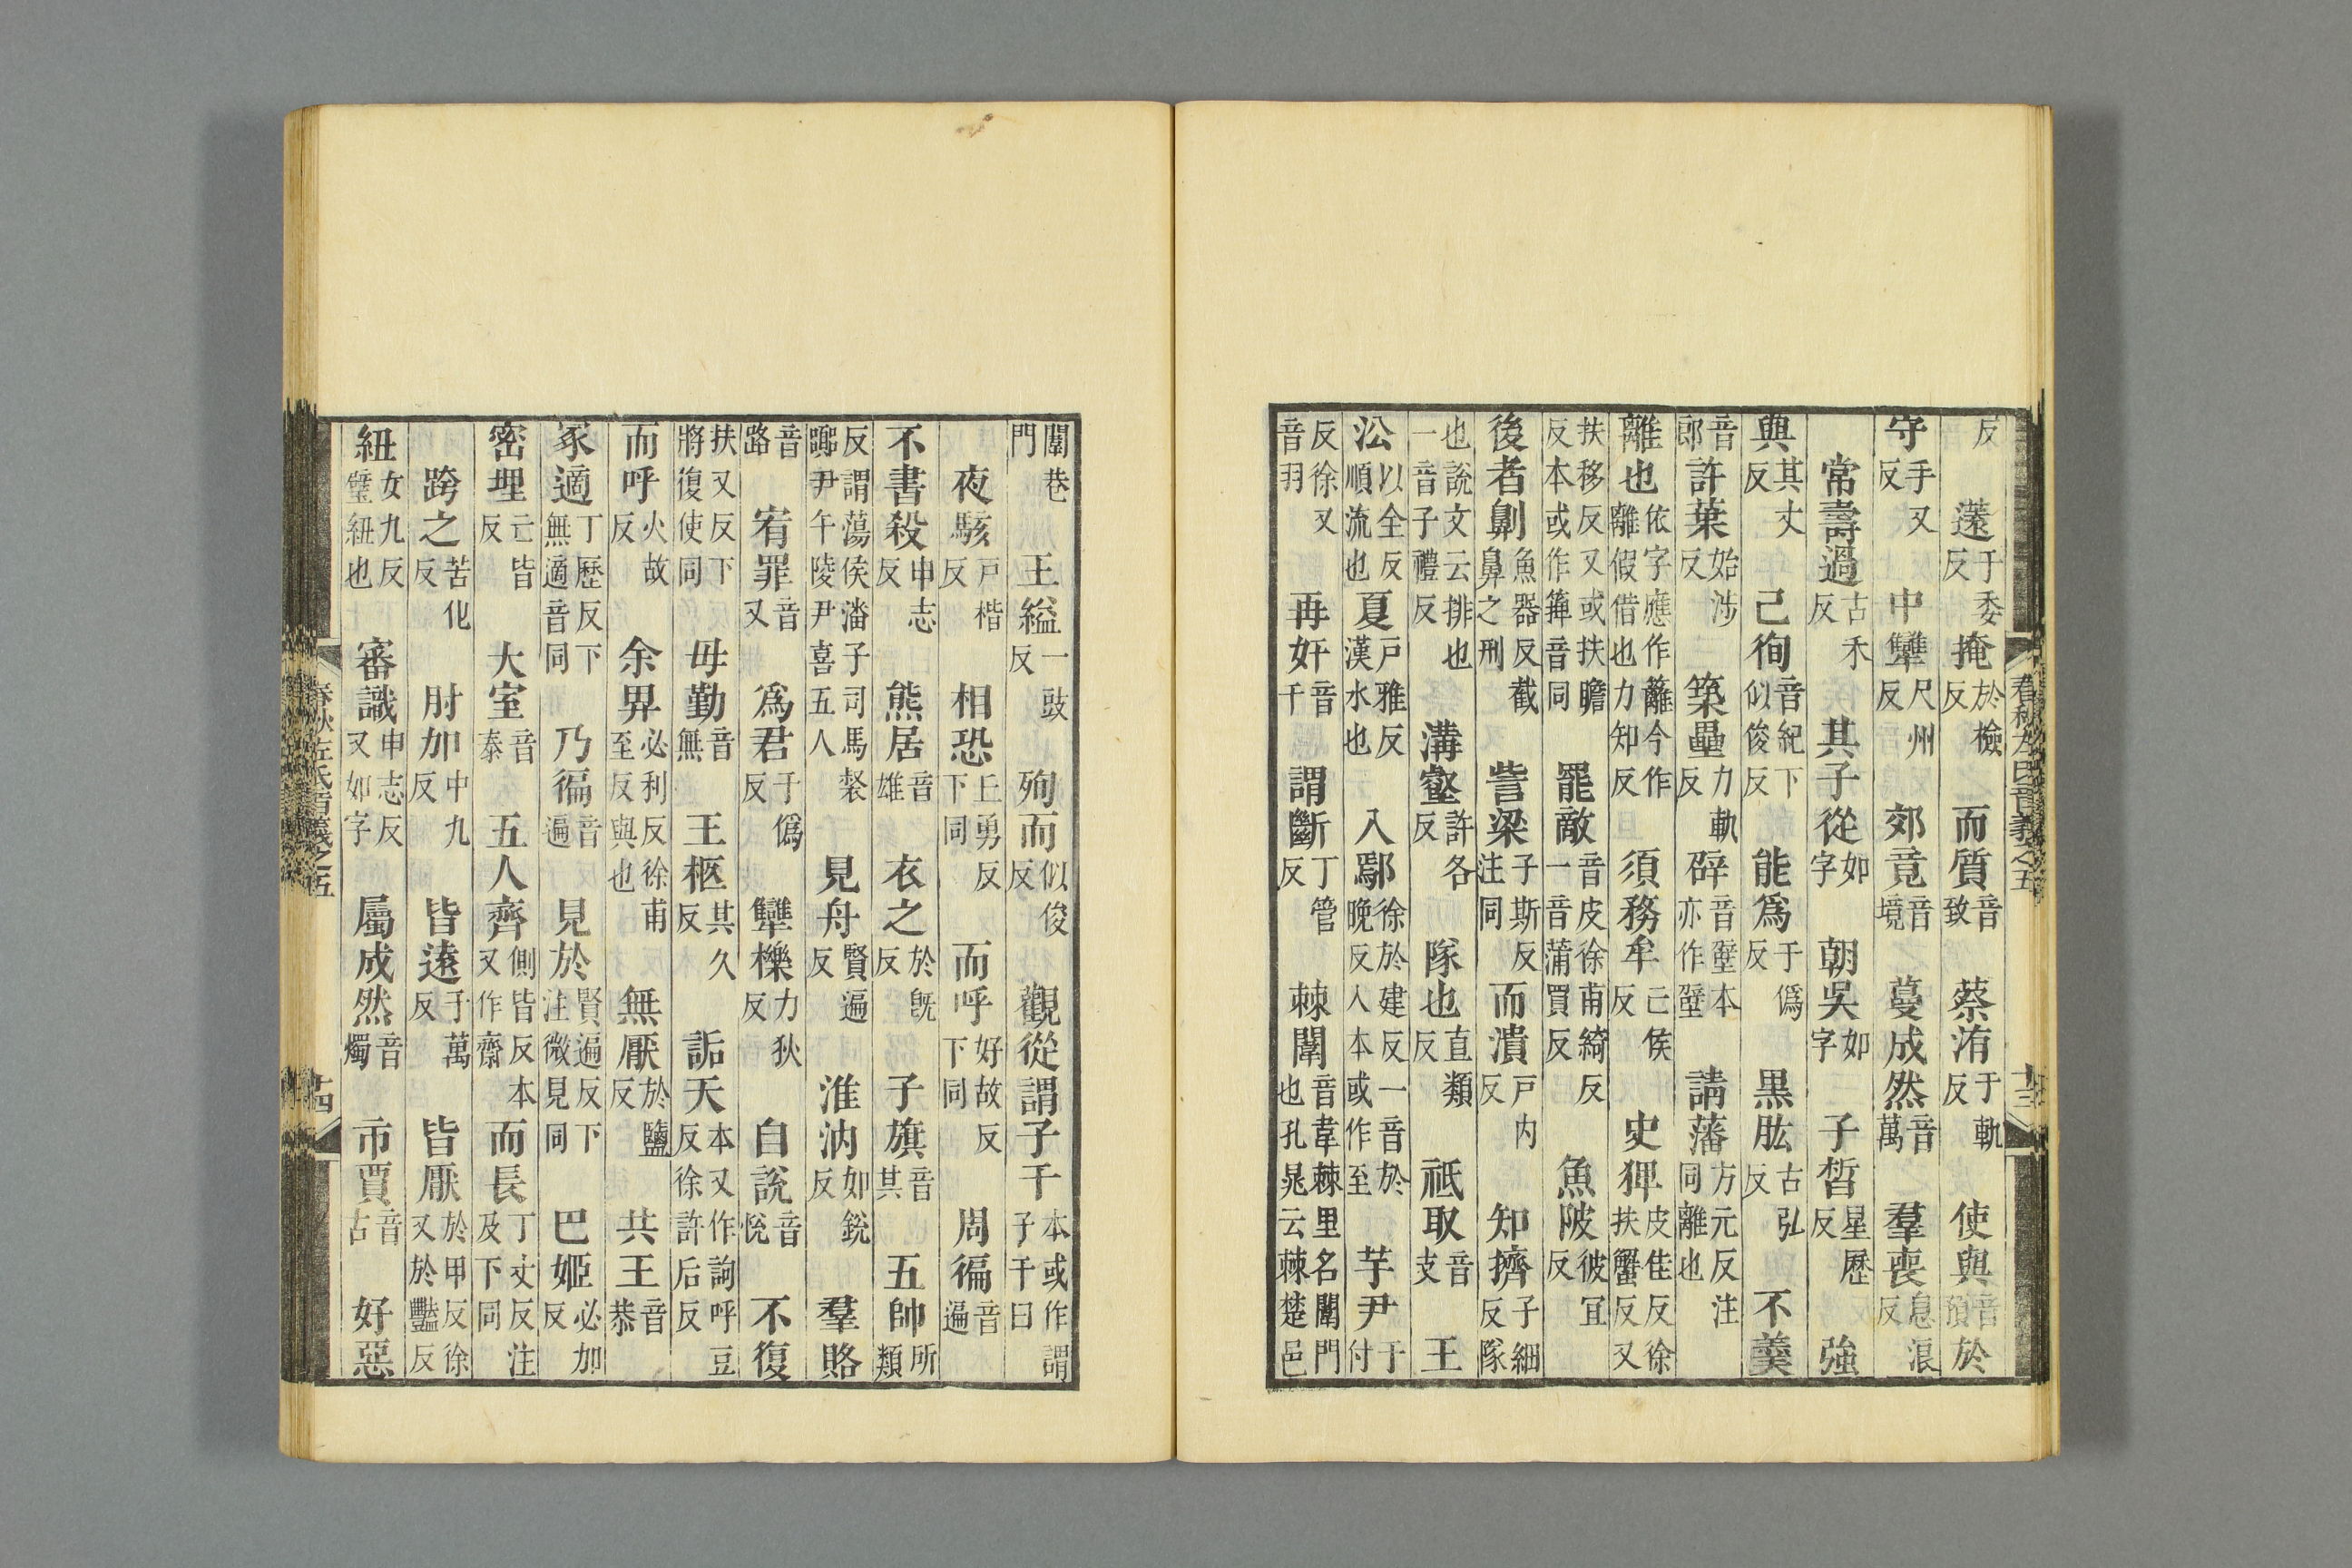 反 薳于委反 掩於檢反 而質音致 蔡洧于軌反 使與音預 於
守手又反 中犫尺州反 郊竟音境 蔓成然音萬 羣喪息浪反
常壽過古禾反 其子從如字 朝吳如字 子皙星歷反 強
與其丈反 己徇音紀下似俊反 能爲于僞反 黒肱古弘反 不羹
音郎 許葉始涉反 築壘力軌反 辟音壁本亦作壁 請藩方元反注同離也
離也依字應作籬今作離假借也力知反 須務牟亡侯反 史猈皮佳反徐扶蟹反又
扶移反又或扶瞻反本或作箄音同 罷敵音皮徐甫綺反一音蒲買反 魚陂彼宜反
後者劓魚器反截鼻之刑 訾梁子斯反注同 而潰戸内反 知擠子細反隊
也說文云排也一音子禮反 溝壑許各反 隊也直類反 祗取音支 王
㳂以全反順流也 夏戸雅反漢水也 入鄢徐於建反一音於晚反人本或作至 芋尹于付
反徐又音羽 再奸音干 謂斷丁管反 棘闈音韋棘里名闈門也孔晁云棘楚邑
春秋左氏音義之五 十三
闈巷門 王縊一豉反 殉而似俊反 觀從謂子干本或作謂子干曰
夜駭戸楷反 相恐上勇反下同 而呼好故反下同 周徧音遍
不書殺申志反 熊居音雄 衣之於旣反 子旗音其 五帥所類
反謂蕩侯潘子司馬督囂尹午陵尹喜五人 見舟賢遍反 淮汭如銳反 羣賂
音路 宥罪音又 爲君于僞反 犫櫟力狄反 自說音悅 不復
扶又反下將復使同 毋勤音無 王柩其久反 詬天本又作詢呼豆反徐許后反
而呼火故反 余畀必利反徐甫至反與也 無厭於鹽反 共王音恭
冢適丁歷反下無適音同 乃徧音遍 見於賢遍反下注微見同 巴姬必加反
密埋亡皆反 大室音泰 五人齊側皆反本又作齋 而長丁丈反注及下同
跨之苦化反 肘加中九反 皆遠于萬反 皆厭於甲反徐又於豔反
紐女九反璧紐也 審識申志反又如字 屬成然音燭 市賈音古 好惡
春秋左氏音義之五 十四